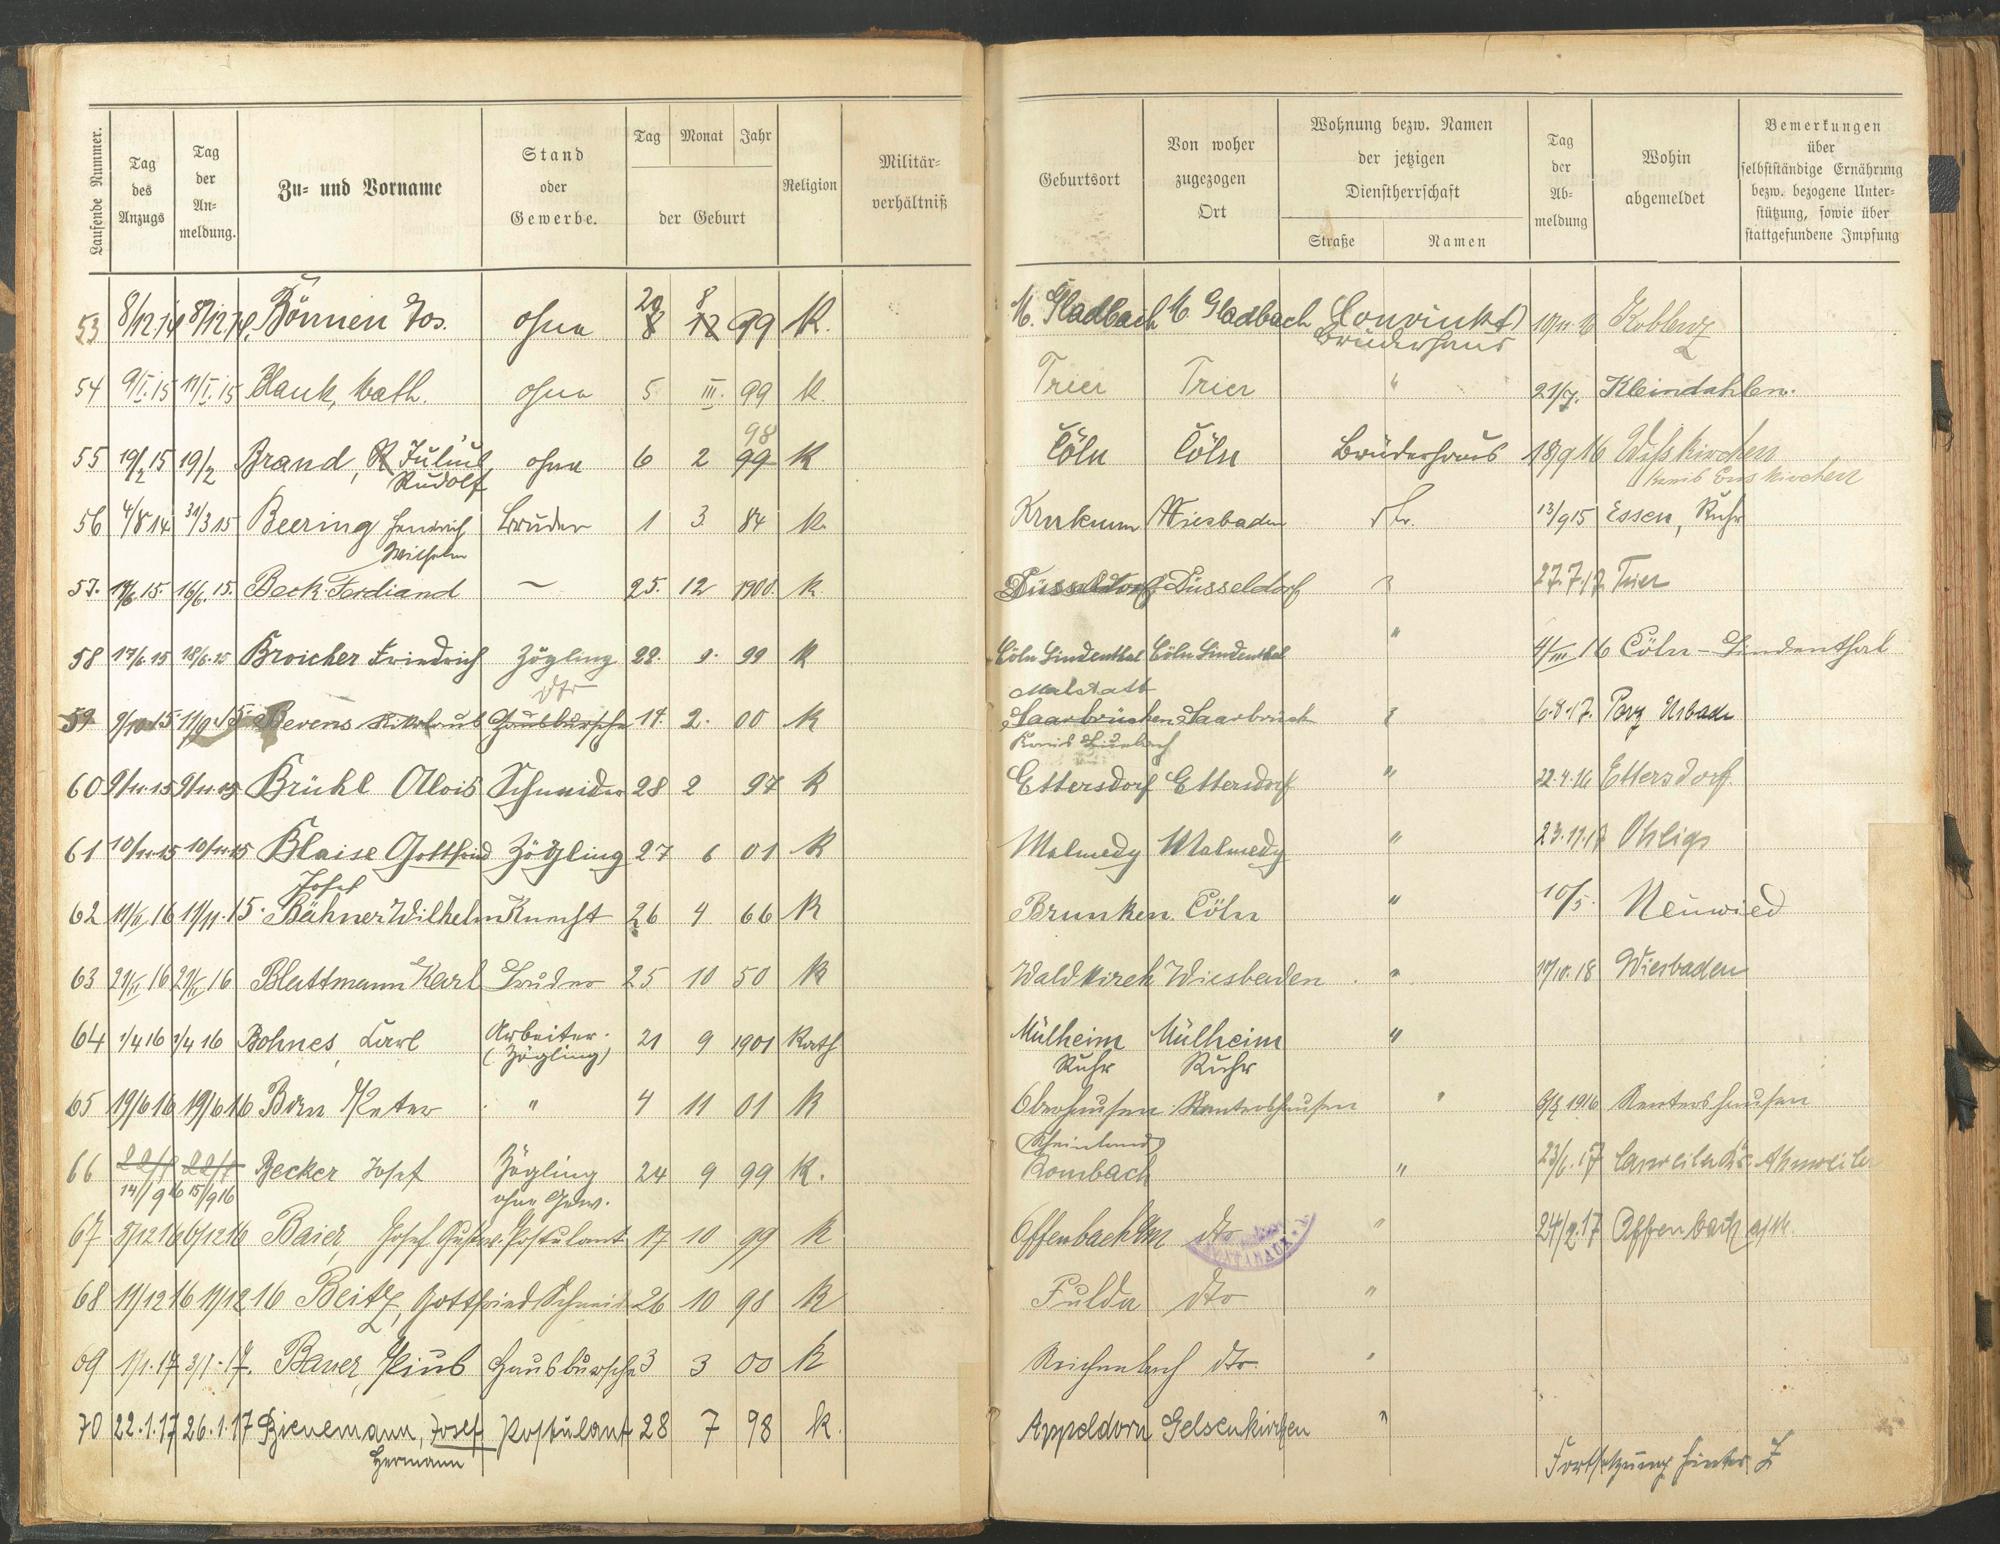 Laufende Nummer.
Tag des Anzugs
Tag der Anmeldung.
Zu- und Vorname
Stand oder Gewerbe.
Tag Monat Jahr
der Geburt
Religion
Militärverhältniß
Geburtsort
Von woher zugezogen Ort
Wohnung bezw. Namen der jetzigen Dienstherrschaft
Straße Namen
Tag der Abmeldung
Wohin abgemeldet
Bemerkungen über selbstständige Ernährung bezw. bezogene Unterstützung, sowie über stattgefundene Impfung
53 8/12.14 8/12.14. Bönnen Jos. ohne 20 8 99 K. M. Gladbach M Gladbach Convinkt 19/11 16 Koblenz
Brüderhaus
54 9/I.15 11/I.15 Blank, Math. ohne 5 III. 99 K. Trier Trier " 21/7. Kleindahlen.
98
55 19/2 15 19/2 Brand, Julius ohne 6 2 99 K Cöln Cöln Brüderhaus 18/9 16 Wißkirchen
Rudolf Kreis Euskirchen
56 4/8 14 31/3 15 Beering Heinrich Bruder 1 3 84 K. Wiesbaden 13/9 15 Essen, Ruhr
Wilhelm
57. 15. 16/6.15. Beck Ferdiand – 25. 12 1900. K Düsseldorf Düsseldorf 27.7.17 Trier
58 17/6.15 18/6.15 Broicher Friedrich Zögling 28. 9. 99 K Cöln Lindenthal Cöln Lindenthal " 4/III 16 Cöln-Lindenthal
dto Malstatt
59 Bevens Nikolaus Hausbursche 14. 2. 00 K Saarbrücken Saarbrück 6.8.17. Porz Urbach
Kreis
60 9/11.15 9/11.15 Brühl Alois Schneider 28 2 97 K Ettersdorf Ettersdorf " 22.4.16 Ettersdorf
61 10/11.15 10/11.15 Blaise Gottfried Zögling 27 6 01 K Malmedy Malmedy " 23.11.17 Ohligs
Josef
62 16 15. Bähner Wilhelm Knecht 26 4 66 K Brunken. Cöln " 10/5. Neuwied
63 21/II 16 21/II 16 Blattmann Karl Bruder 25 10 50 K Waldkirch Wiesbaden " 17/10.18 Wiesbaden
64 1/4 16 1/4 16 Bohnes, Carl Arbeiter. 21 9 1901 Kath Mülheim Mülheim "
(Zögling) Ruhr Ruhr
65 19/6 16 19/6 16 Born Peter " 4 11 01 K Oberhausen Rentershausen " 9/8 1916 Rentershausen
(Rheinland)
66 22/8 22/8 Becker Josef Zögling 24 9 99 K. Rombach " 23/6.17 Ahrweiler
14/9 16 15/9 16 ohne Gew.
67 5/12 16 6/12 16 Baier, Josef Gustav Postulant 17 10 99 K Offenbach a/m dto " 24/2.17 Offenbach a/M.
68 11/12 16 11/12 16 Beitz, Gottfried Schneid 26 10 98 K Fulda dto "
69 1/1.17 3/1.17. Bauer, Pius Hausbursche 3 3 00 K Reichenbach dto. "
70 22.1.17 26.1.17 Bienemann, Josef Postulant 28 7 98 K. Appeldorn Gelsenkirchen "
Hermann
Fortsetzung hinter Z